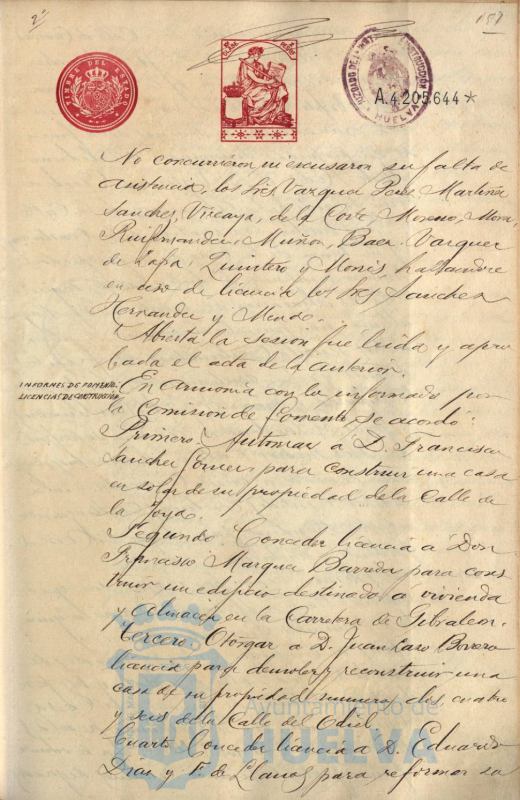 2ª
157
TIMBRE DEL ESTADO
A.4.205.644*
HUELVA
No concurrieron ni excusaron su falta de
asistencia, los Sres Vazquez Perez Martinez
Sanchez, Vizcaya, de la Corte Moreno, Mora,
Ruifernandez, Muñoz, Baez. Vazquez
de Zafra, Quintero y Monis, hallandose
en uso de licencia los Sres Sanchez
Hernandez y
Abierta la sesion fue leida y apro
bada el acta de la anterior.
INFORMES DE FOMENTO.
LICENCIAS DE CONSTRUCCIÓN
En armonía con lo informado por
la Comision de Fomento, se acordó:
Primero. Autorizar a D. Francisco
Sanchez Gomez para construir una casa
en solar de su propiedad de la Calle de
la Joya.
Segundo. Conceder licencia a Don
Francisco Marquez Barreda para cons
truir un edificio destinado a vivienda
y almacen en la Carretera de Gibraleon.
Tercero. Otorgar a D. Juan Lazo Borrero
licencia para demoler y reconstruir una
casa de su propiedad numeros dos cuatro
y seis de la Calle del Odiel
Cuarto. Conceder licencia a D. Eduardo
Dias y F. de Llanos para reformar su
Ayuntamiento de
HUELVA